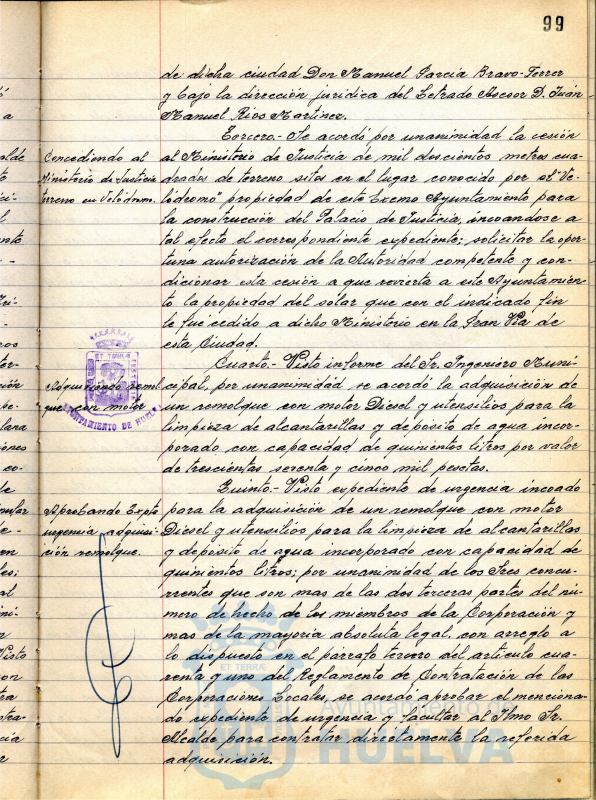 99
de dicha ciudad Don Manuel Garcia Bravo-Ferrer
y bajo la dirección juridica del Letrado Asesor D. Juán
Manuel Rios Martinez.
Tercero.- Se acordó por unanimidad la cesión
al Ministerio de Justicia de mil doscientos metros cua-
drados de terreno sitos en el lugar conocido por el "Ve-
lódromo" propiedad de este Excmo Ayuntamiento para
la construcción del Palacio de Justicia, incoandose a
tal efecto el correspondiente expediente; solicitar la opor-
tuna autorización de la Autoridad competente y con-
dicionar esta cesión a que revierta a este Ayuntamien-
to la propiedad del solar que con el indicado fin
le fue cedido a dicho Ministerio en la Gran Vía de
esta Ciudad.
Concediendo al
Ministerio de Justicia
terreno en Velódromo.
Cuarto.- Visto informe del Sr. Ingeniero Muni-
cipal, por unanimidad se acordó la adquisición de
un remolque con motor Diesel y utensilios para la
limpieza de alcantarillas y depósito de agua incor-
porado con capacidad de quinientos litros por valor
de trescientas setenta y cinco mil pesetas.
Adquiriendo remol-
que con motor
ET TERRÆ
AYUNTAMIENTO DE HUELVA
Quinto.- Visto expediente de urgencia incoado
para la adquisición de un remolque con motor
Diesel y utensilios para la limpieza de alcantarillas
y depósito de agua incorporado con capacidad de
quinientos litros; por unanimidad de los Sres concu-
rrentes que son mas de las dos terceras partes del nú-
mero de hecho de los miembros de la Corporación y
mas de la mayoria absoluta legal, con arreglo a
lo dispuesto en el párrafo tercero del articulo cua-
renta y uno del Reglamento de Contratación de las
Corporaciones Locales, se acordó aprobar el menciona-
do expediente de urgencia y facultar al Ilmo Sr.
Alcalde para contratar diréctamente la referida
adquisición.
Aprobando Expte
urgencia adquisi-
ción remolque.
ET TERRÆ
Ayuntamiento de
HUELVA